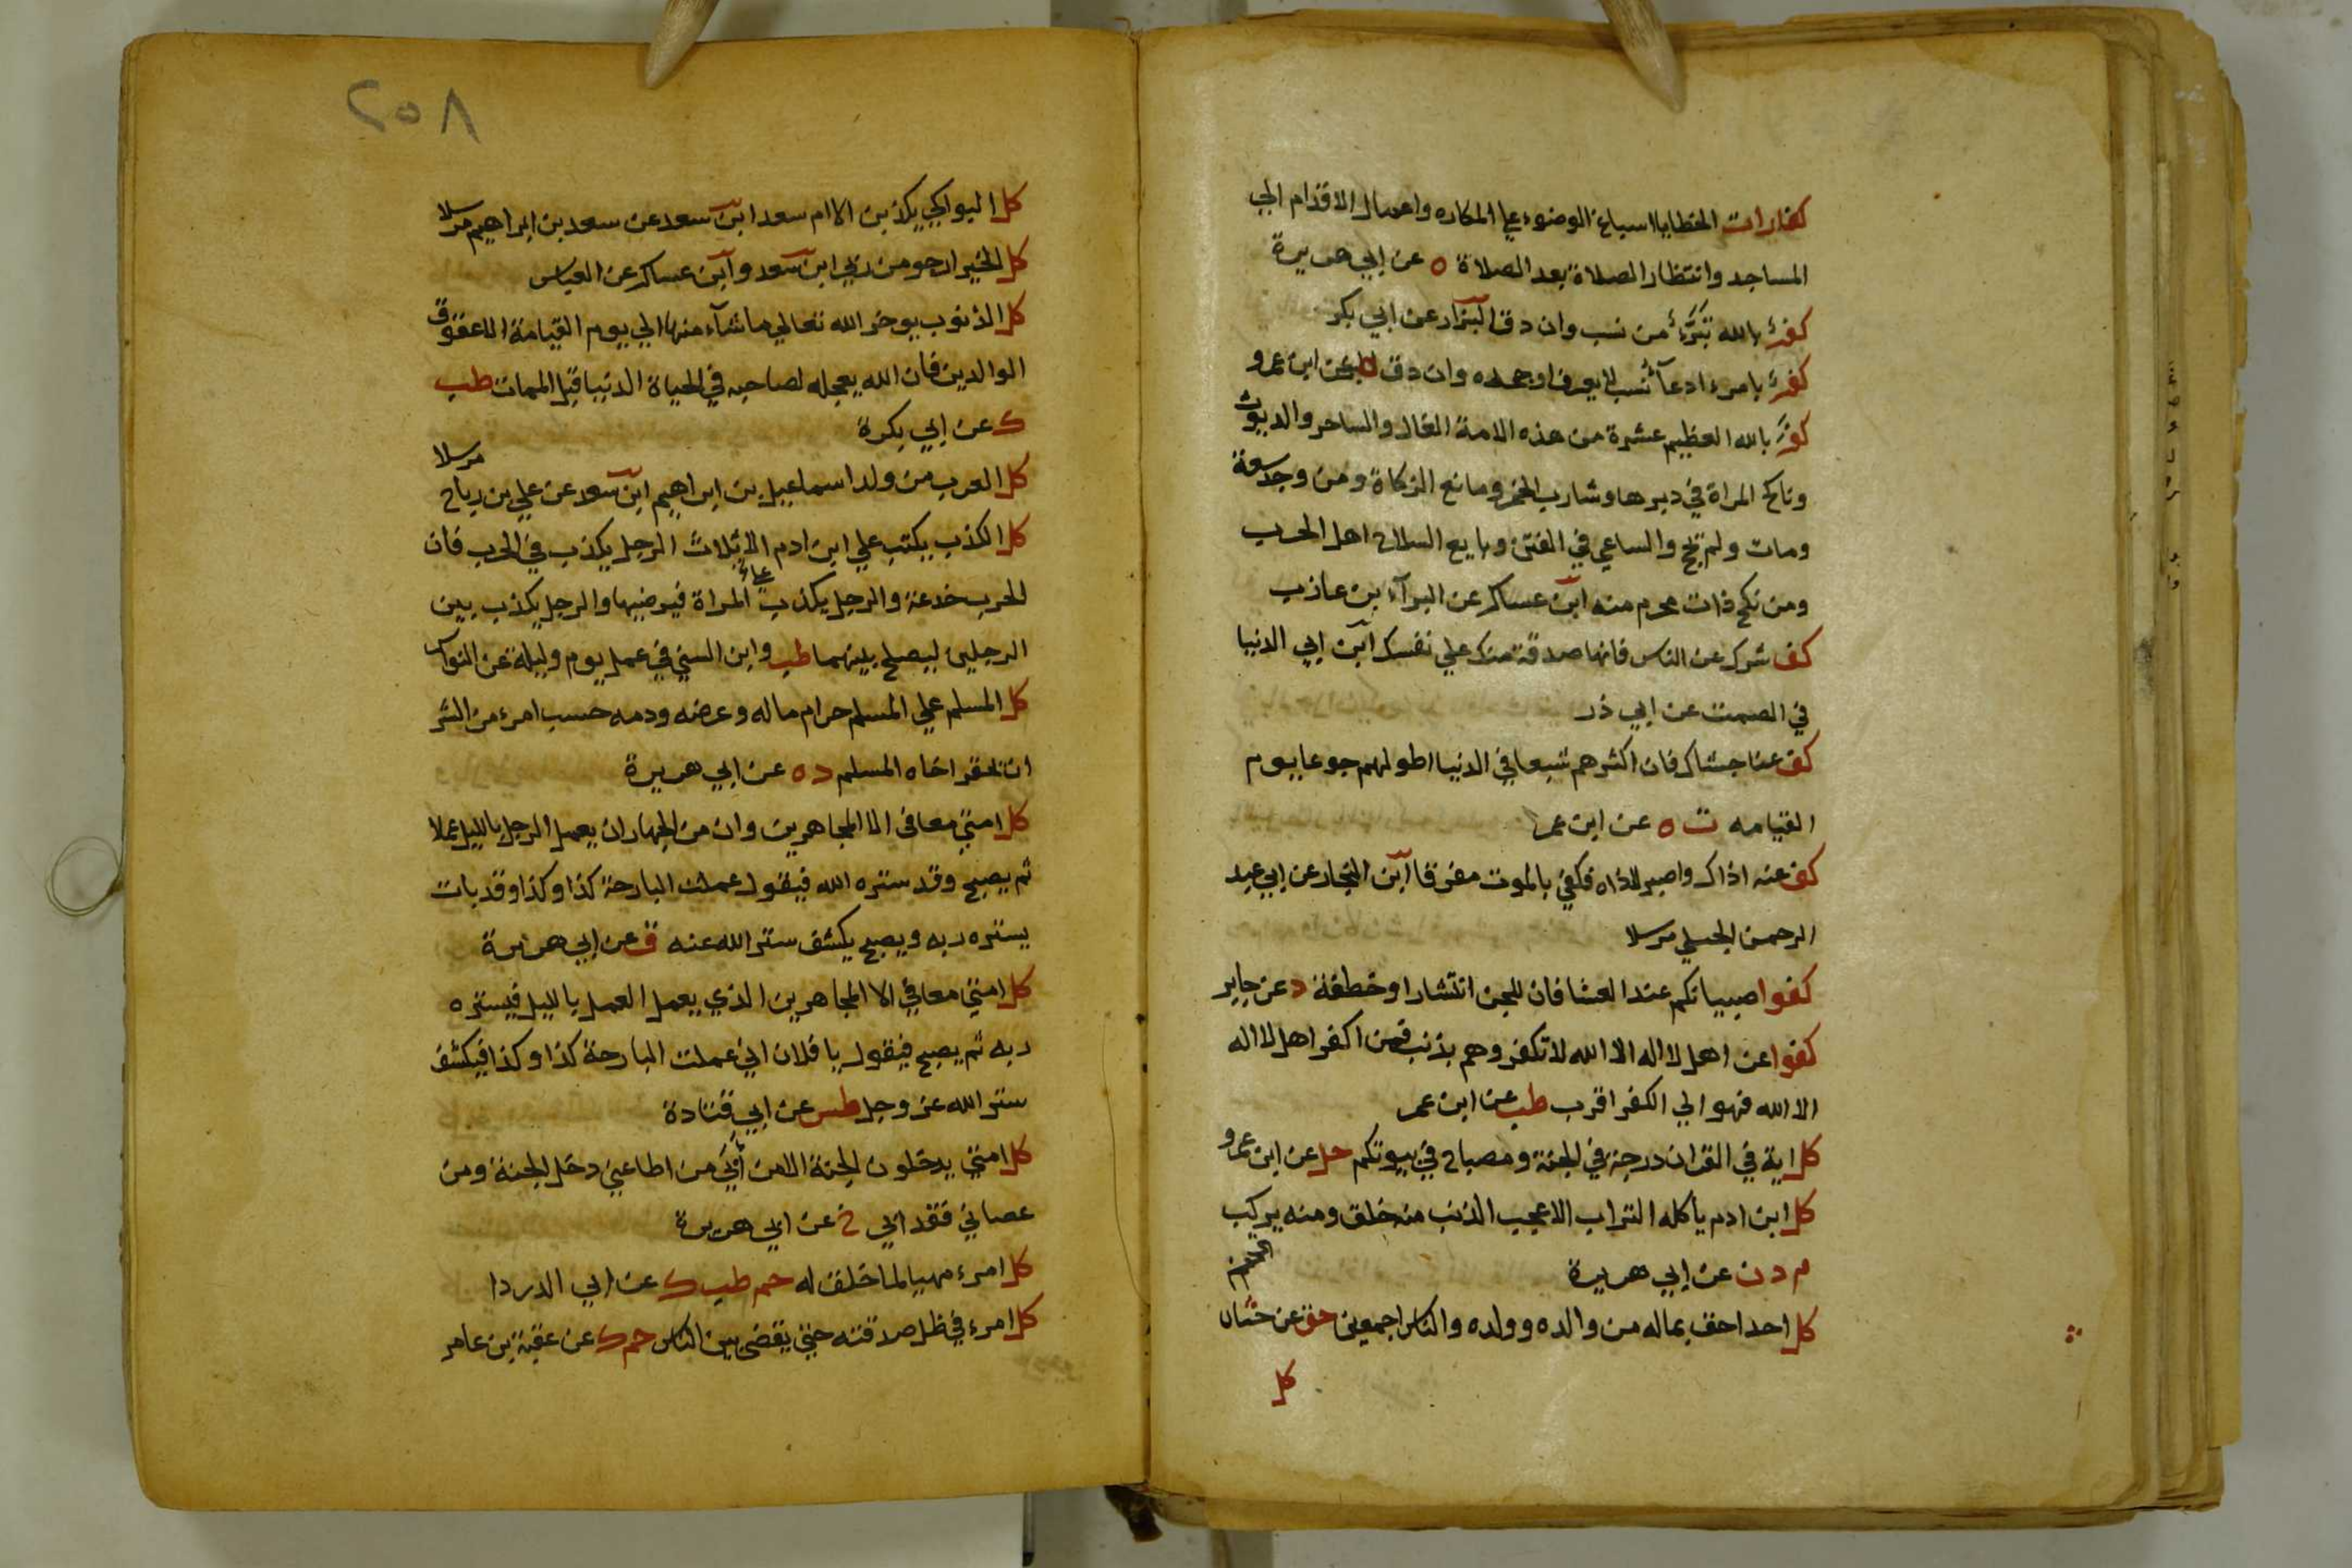 كفارات الخطايا اسباغ الوضوء علي المكاره واعمال الاقدام الي
المساجد وانتظار الصلاة بعد الصلاة ه عن ابي هريرة
كفرٌ بالله تَبَرُّءٌ من نسب وان دق البزار عن ابي بكر
كفرٌ بامرء ادعآ نسب لا يعرف او جحده وان دق ه عن ابن عمرو
كفَرَ بالله العظيم عشرة من هذه الامة الغال والساحر والديوث
وناكح المراة في دبرها وشارب الخمر ومانع الزكاة ومن وجد سعة
ومات ولم يحج والساعي في الفتن وبايع السلاح اهل الحرب
ومن نكح ذات محرم منه ابن عساكر عن البرآء بن عازب
كف شرك عن الناس فانها صدقة منك علي نفسك ابن ابي الدنيا
في الصمت عن ابي ذر
كف عنا جشاك فان اكثرهم شبعا في الدنيا اطولهم جوعا يوم
القيامه ت ه عن ابن عمر
كف عنه اذاك واصبر لاذاه فكفي بالموت مفرقا ابن النجار عن ابي عبد
الرحمن الحبلي مرسلا
كفوا صبيانكم عند العشا فان للجن انتشارا وخطفة د عن جابر
كفوا عن اهل لا اله الا الله لا تكفروهم بذنب فمن اكفر اهل لا اله
الا الله فهو الي الكفر اقرب طب عن ابن عمر
كل اية في القران درجة في الجنة ومصباح في بيوتكم حل عن ابن عمرو
كل ابن ادم يأكله التراب الا عجب الذنب منه خلق ومنه يركب
م د ن عن ابي هريرة
كل احد احق بماله من والده وولده والناس اجمعين هق عن حبان
كل
٢٥٨
كل البواكي يكذبن الا ام سعد ابن سعد عن سعد بن ابراهيم مرسلا
كل الخير ارجو من ربي ابن سعد وابن عساكر عن العباس
كل الذنوب يوخر الله تعالي ما شآء منها الي يوم القيامة الا عقوق
الوالدين فان الله يعجله لصاحبه في الحياة الدنيا قبل الممات طب
ك عن ابي بكرة
كل العرب من ولد اسماعيل بن ابراهيم ابن سعد عن علي بن رباح مرسلا
كل الكذب يكتب علي ابن ادم الا ثلاث الرجل يكذب في الحرب فان
الحرب خدعة والرجل يكذب علي المراة فيرضيها والرجل يكذب بين
الرجلين ليصلح بينهما طب وابن السني في عمل يوم وليلة عن النواس
كل المسلم علي المسلم حرام ماله وعرضه ودمه حسب امرء من الشر
ان يحقر اخاه المسلم د ه عن ابي هريرة
كل امتي معافى الا المجاهرين وان من الجهار ان يعمل الرجل بالليل عملا
ثم يصبح وقد ستره الله فيقول عملت البارحة كذا وكذا وقد بات
يستره ربه ويصبح يكشف ستر الله عنه ق عن ابي هريرة
كل امتي معافي الا المجاهرين الذي يعمل العمل بالليل فيستره
ربه ثم يصبح فيقول يا فلان اني عملت البارحة كذا وكذا فيكشف
ستر الله عز وجل طس عن ابي قتادة
كل امتي يدخلون الجنة الا من أبَي من اطاعني دخل الجنة ومن
عصاني فقد ابي خ عن ابي هريرة
كل امرء مهيا لما خلق له حم طب ك عن ابي الدردا
كل امرء في ظل صدقته حتي يقضى بين الناس حم ك عن عقبة بن عامر